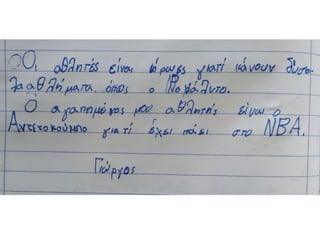 Οι αθλητές είναι ήρωες γιατί κάνουν δύσκο-
λα αθλήματα όπως ο Ροναλντο.
Ο αγαπημένος μου αθλητής είναι ο
Αντετοκούμπο γιατί έχει πάει στο NBA.
Γιώργος